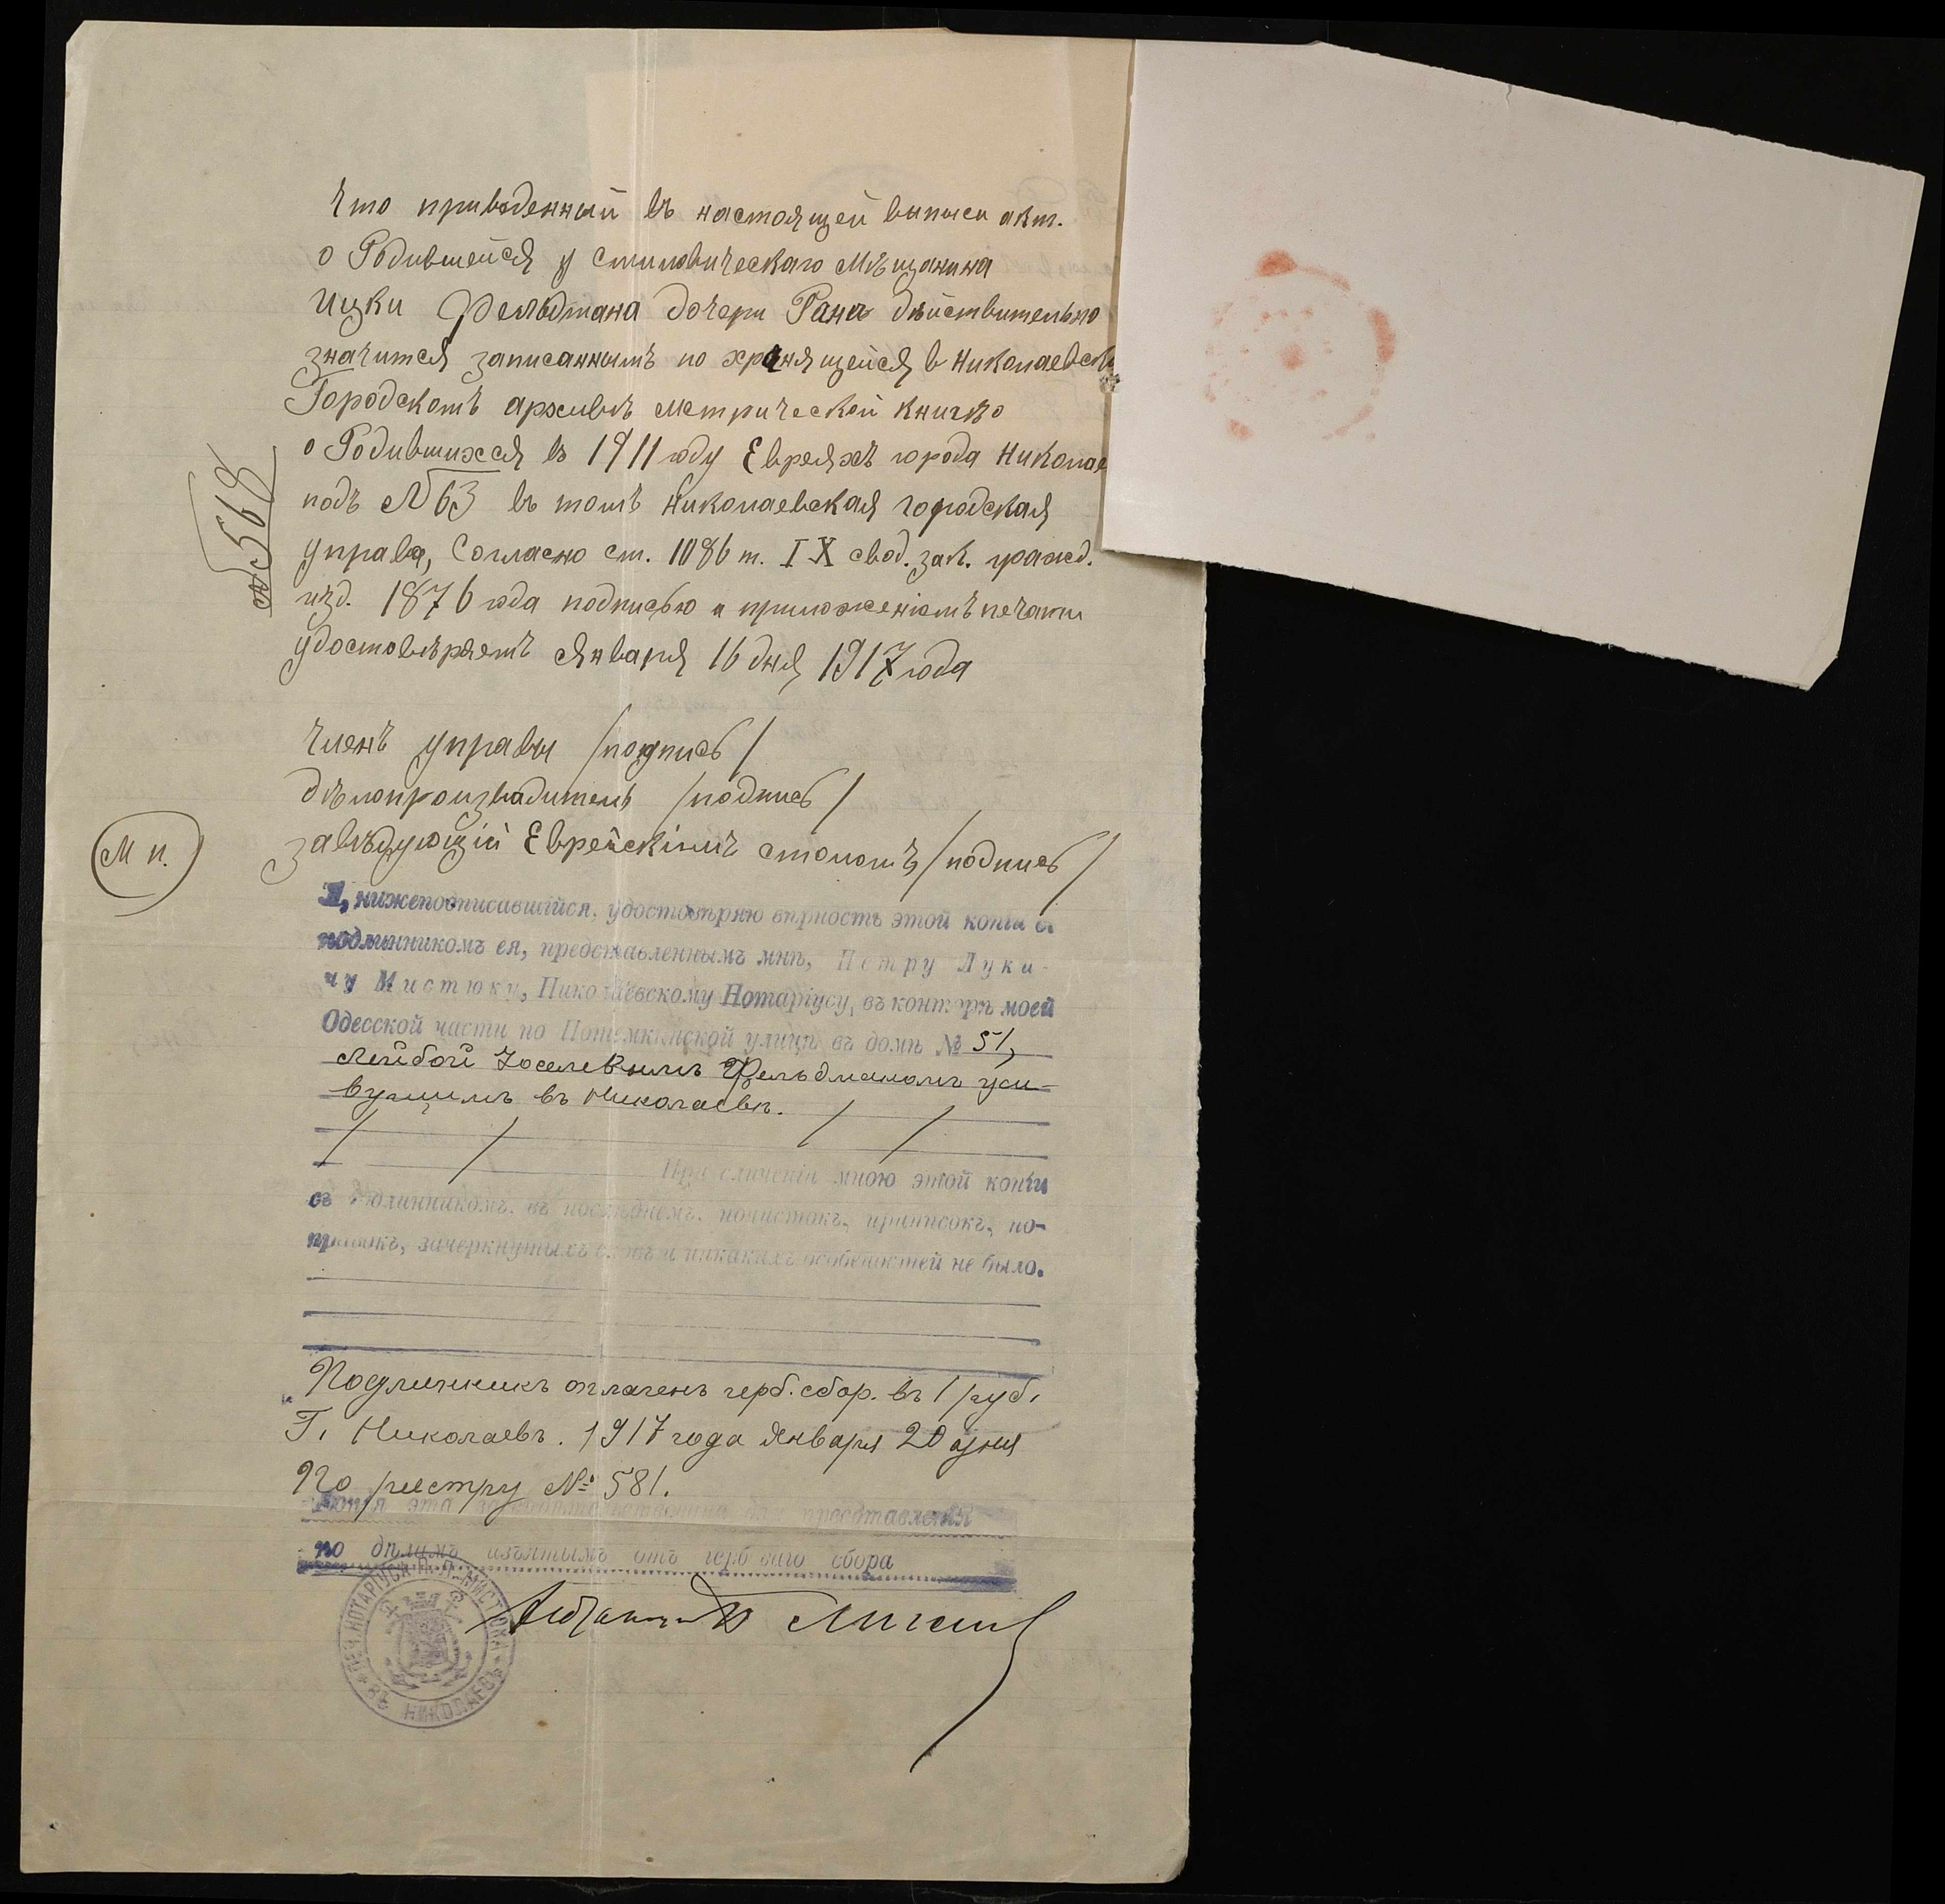 Что приведенный въ настоящей выписи акт.
о Родившейся у смиловическаго Мѣщанина
Ицки Фельдмана дочери Рана дѣйствительно
значится записаннымъ по хранящейся в Николаевск
Городскомъ архивѣ метрической книгѣ
о Родившихся въ 1911 году Евреяхъ города Николае
подъ № 63 въ томъ Николаевская городская
управа, Согласно ст. 1086 т. IX свод. зак. гражд.
изд. 1876 года подписью и приложеніемъ печати
удостовѣряетъ Января 16 дня 1917 года
№ 568
Членъ управы /подпись/
дѣлопроизвадитель /подпись/
М п.
завѣдующій Еврейскімъ столомъ /подпись/
Я, нижеподписавшійся, удостовѣряю вѣрность этой копіи съ
подлинникомъ ея, представленнымъ мнѣ, Петру Луки-
чу Мистюку, Николаевскому Нотаріусу, въ конторѣ моей
Одесской части по Потемкинской улицѣ въ домѣ № 51,
Лейбой Іоселевымъ Фельдманомъ жи-
вущимъ въ Николаевѣ.
При сличеніи мною этой копіи
съ подлинникомъ, въ послѣднемъ, почистокъ, приписокъ, по-
правокъ, зачеркнутыхъ словъ и никакихъ особенностей не было.
Подлинникъ оплаченъ герб. сбор. въ 1 руб.
Г. Николаевъ. 1917 года Января 20 дня
По реестру № 581.
Копія эта засвидѣтельствована для представленія
по дѣламъ изъятымъ отъ гербоваго сбора
Нотаріусъ П. Мистюкъ
ПЕЧ. НОТАРІУСА П. Л. МИСТЮКА ВЪ НИКОЛАЕВѢ